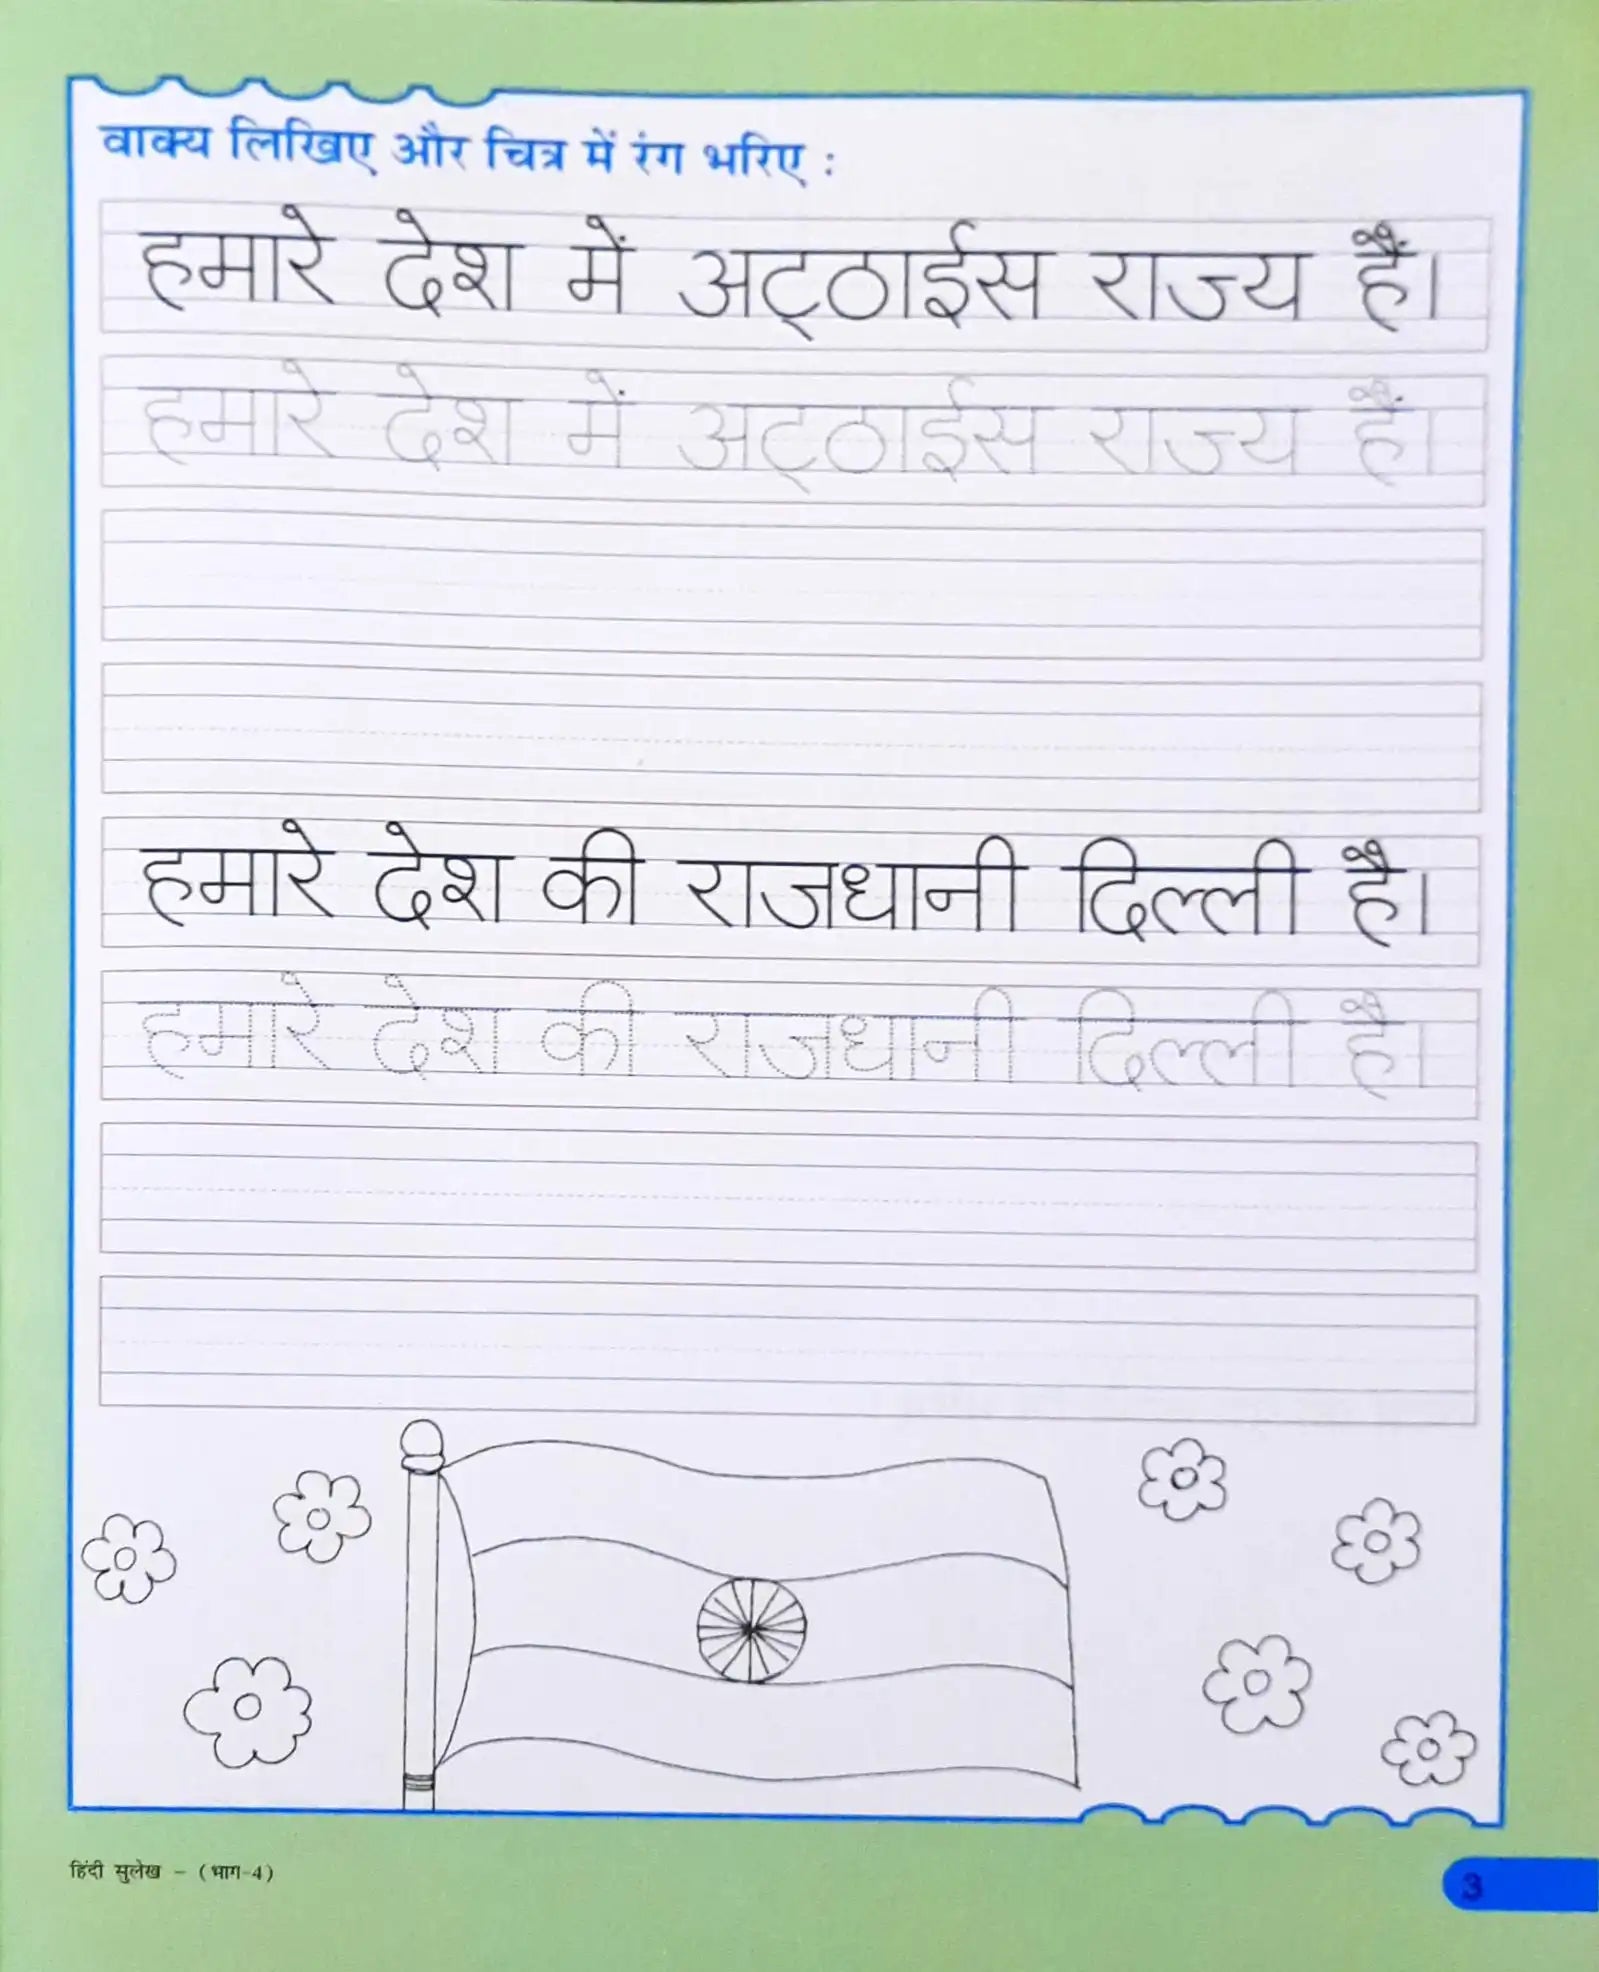 वाक्य लिखिए और चित्र में रंग भरिए :
हमारे देश में अट्ठाईस राज्य हैं।
हमारे देश में अट्ठाईस राज्य हैं।
हमारे देश की राजधानी दिल्ली है।
हमारे देश की राजधानी दिल्ली है।
हिंदी सुलेख - (भाग-4)
3